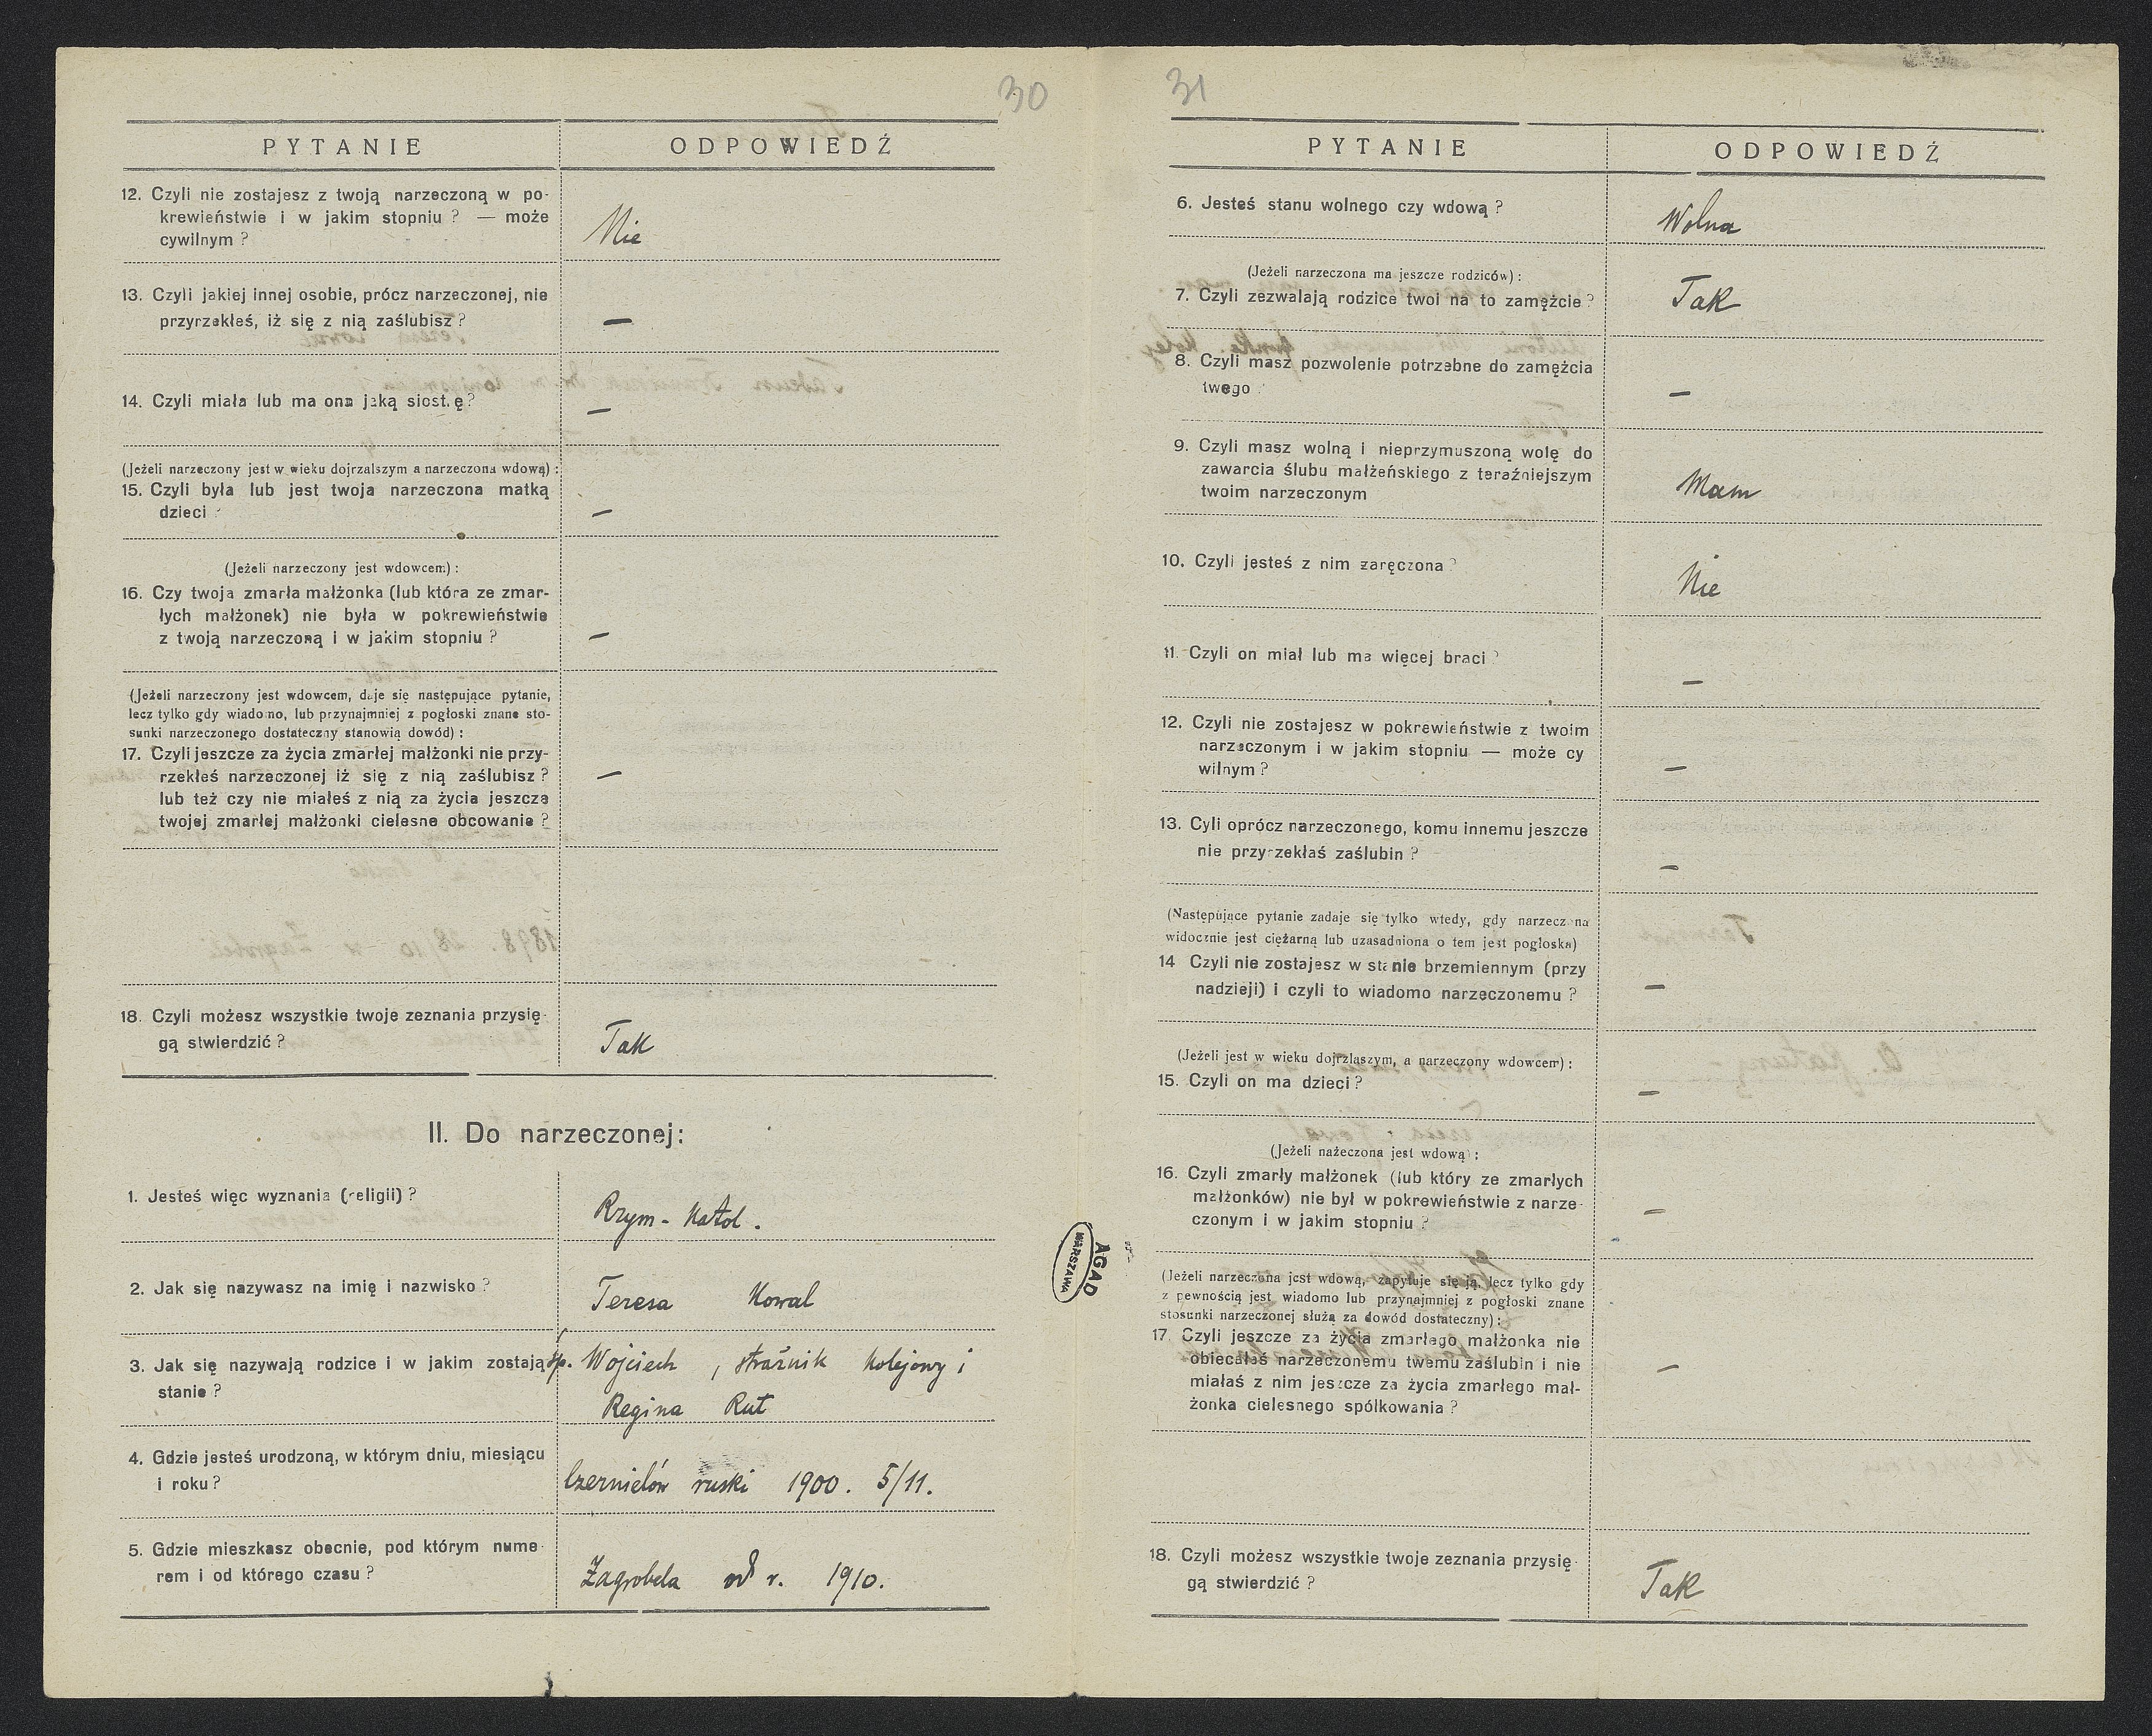 30
PYTANIE ODPOWIEDŹ
12. Czyli nie zostajesz z twoją narzeczoną w po-
krewieństwie i w jakim stopniu? — może
cywilnym?
Nie
13. Czyli jakiej innej osobie, prócz narzeczonej, nie
przyrzekłeś, iż się z nią zaślubisz?
—
14. Czyli miała lub ma ona jaką siostrę?
—
(Jeżeli narzeczony jest w wieku dojrzalszym a narzeczona wdową):
15. Czyli była lub jest twoja narzeczona matką
dzieci?
—
(Jeżeli narzeczony jest wdowcem):
16. Czy twoja zmarła małżonka (lub która ze zmar-
łych małżonek) nie była w pokrewieństwie
z twoją narzeczoną i w jakim stopniu?
—
(Jeżeli narzeczony jest wdowcem, daje się następujące pytanie,
lecz tylko gdy wiadomo, lub przynajmniej z pogłoski znane sto-
sunki narzeczonego dostateczny stanowią dowód):
17. Czyli jeszcze za życia zmarłej małżonki nie przy-
rzekłeś narzeczonej iż się z nią zaślubisz?
lub też czy nie miałeś z nią za życia jeszcze
twojej zmarłej małżonki cielesne obcowanie?
—
18. Czyli możesz wszystkie twoje zeznania przysię-
gą stwierdzić?
Tak
II. Do narzeczonej:
1. Jesteś więc wyznania (religii)?
Rzym-Katol.
2. Jak się nazywasz na imię i nazwisko?
Teresa Kowal
3. Jak się nazywają rodzice i w jakim zostają
stanie?
śp. Wojciech, strażnik kolejowy i
Regina Rut
4. Gdzie jesteś urodzoną, w którym dniu, miesiącu
i roku?
Czernielów ruski 1900. 5/11.
5. Gdzie mieszkasz obecnie, pod którym nume-
rem i od którego czasu?
Zagrobela od r. 1910.
31
PYTANIE ODPOWIEDŹ
6. Jesteś stanu wolnego czy wdową?
Wolna
(Jeżeli narzeczona ma jeszcze rodziców):
7. Czyli zezwalają rodzice twoi na to zamężcie?
Tak
8. Czyli masz pozwolenie potrzebne do zamężcia
twego
—
9. Czyli masz wolną i nieprzymuszoną wolę do
zawarcia ślubu małżeńskiego z teraźniejszym
twoim narzeczonym
Mam
10. Czyli jesteś z nim zaręczona?
Nie
11. Czyli on miał lub ma więcej braci?
—
12. Czyli nie zostajesz w pokrewieństwie z twoim
narzeczonym i w jakim stopniu — może cy
wilnym?
—
13. Cyli oprócz narzeczonego, komu innemu jeszcze
nie przyrzekłaś zaślubin?
—
(Następujące pytanie zadaje się tylko wtedy, gdy narzeczona
widocznie jest ciężarną lub uzasadniona o tem jest pogłoska)
14 Czyli nie zostajesz w stanie brzemiennym (przy
nadzieji) i czyli to wiadomo narzeczonemu?
—
(Jeżeli jest w wieku dojrzlaszym, a narzeczony wdowcem):
15. Czyli on ma dzieci?
—
(Jeżeli nażeczona jest wdową):
16. Czyli zmarły małżonek (lub który ze zmarłych
małżonków) nie był w pokrewieństwie z narze-
czonym i w jakim stopniu?
—
(Jeżeli narzeczona jest wdową, zapytuje się ją, lecz tylko gdy
z pewnością jest wiadomo lub przynajmniej z pogłoski znane
stosunki narzeczonej służą za dowód dostateczny):
17. Czyli jeszcze za życia zmarłego małżonka nie
obiecałaś narzeczonemu twemu zaślubin i nie
miałaś z nim jeszcze za życia zmarłego mał-
żonka cielesnego spółkowania?
—
18. Czyli możesz wszystkie twoje zeznania przysię-
gą stwierdzić?
Tak
AGAD
WARSZAWA